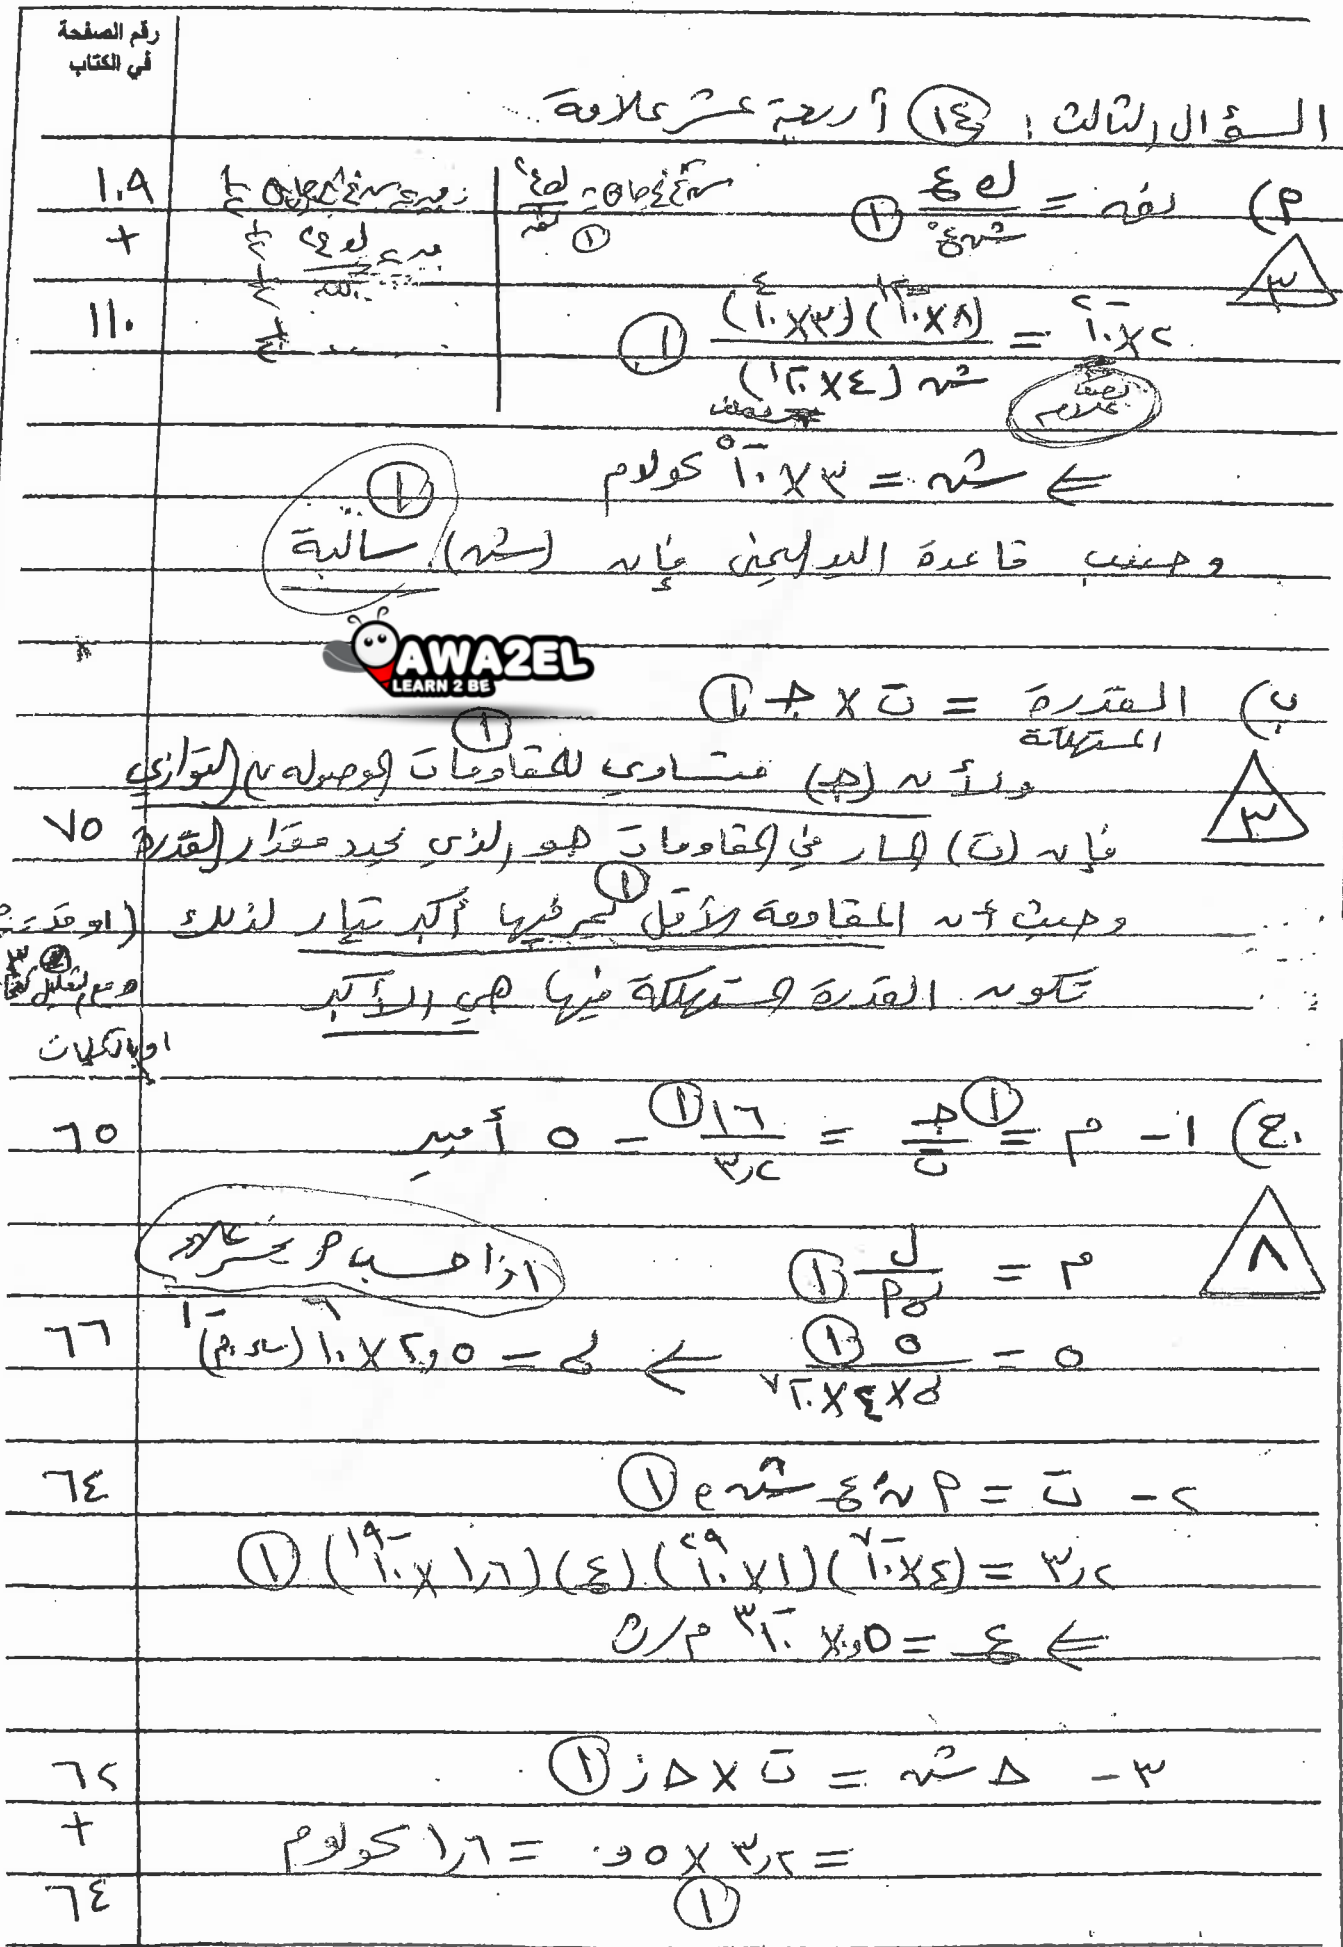 رقم الصفحة
في الكتاب
السؤال الثالث : ١٤ أربعة عشر علامة
١٠٩
+
١١٠
أ) نق = ك ع / شه غ ١
٣
٢×١٠^-٢ = (٨×١٠^-١٢)(٣×١٠^٤) / شه (٤×١٠^-١) ١
نصف علامة
⇐ شه = ٣×١٠^-٥ كولوم
وحسب قاعدة اليد اليمنى فإن (شه) سالبة ١
AWA2EL
LEARN 2 BE
ب) القدرة المستهلكة = ت × جـ ١
٣
ولأن (جـ) متساوي للمقاومات الموصولة على التوازي ١
٧٥
فإن (ت) المار في المقاومات هو الذي يحدد مقدار القدرة
وحيث أن المقاومة الأقل يمر فيها أكبر تيار لذلك ١
تكون القدرة المستهلكة فيها هي الأكبر
او بالكلمات
٦٥
ج) ١- م = جـ / ت ١ = ١٦ / ٣,٢ ١ = ٥ أمبير
٨
م = ل / σ أ ١
اذا حسب م يخسر علامة
٦٦
٥ = ٥ / σ×٤×١٠^-٧ ١ ← σ = ٢,٥×١٠^٦
٦٤
٢- ت = أ ن ع شه e ١
٣,٢ = (٤×١٠^-٧)(١×١٠^٢٩)(ع)(١,٦×١٠^-١٩) ١
⇐ ع = ٠,٥×١٠^-٣ م/ث
٦٢
+
٦٤
٣- Δ شه = ت × Δ ز ١
= ٣,٢ × ٠,٥ = ١,٦ كولوم
١